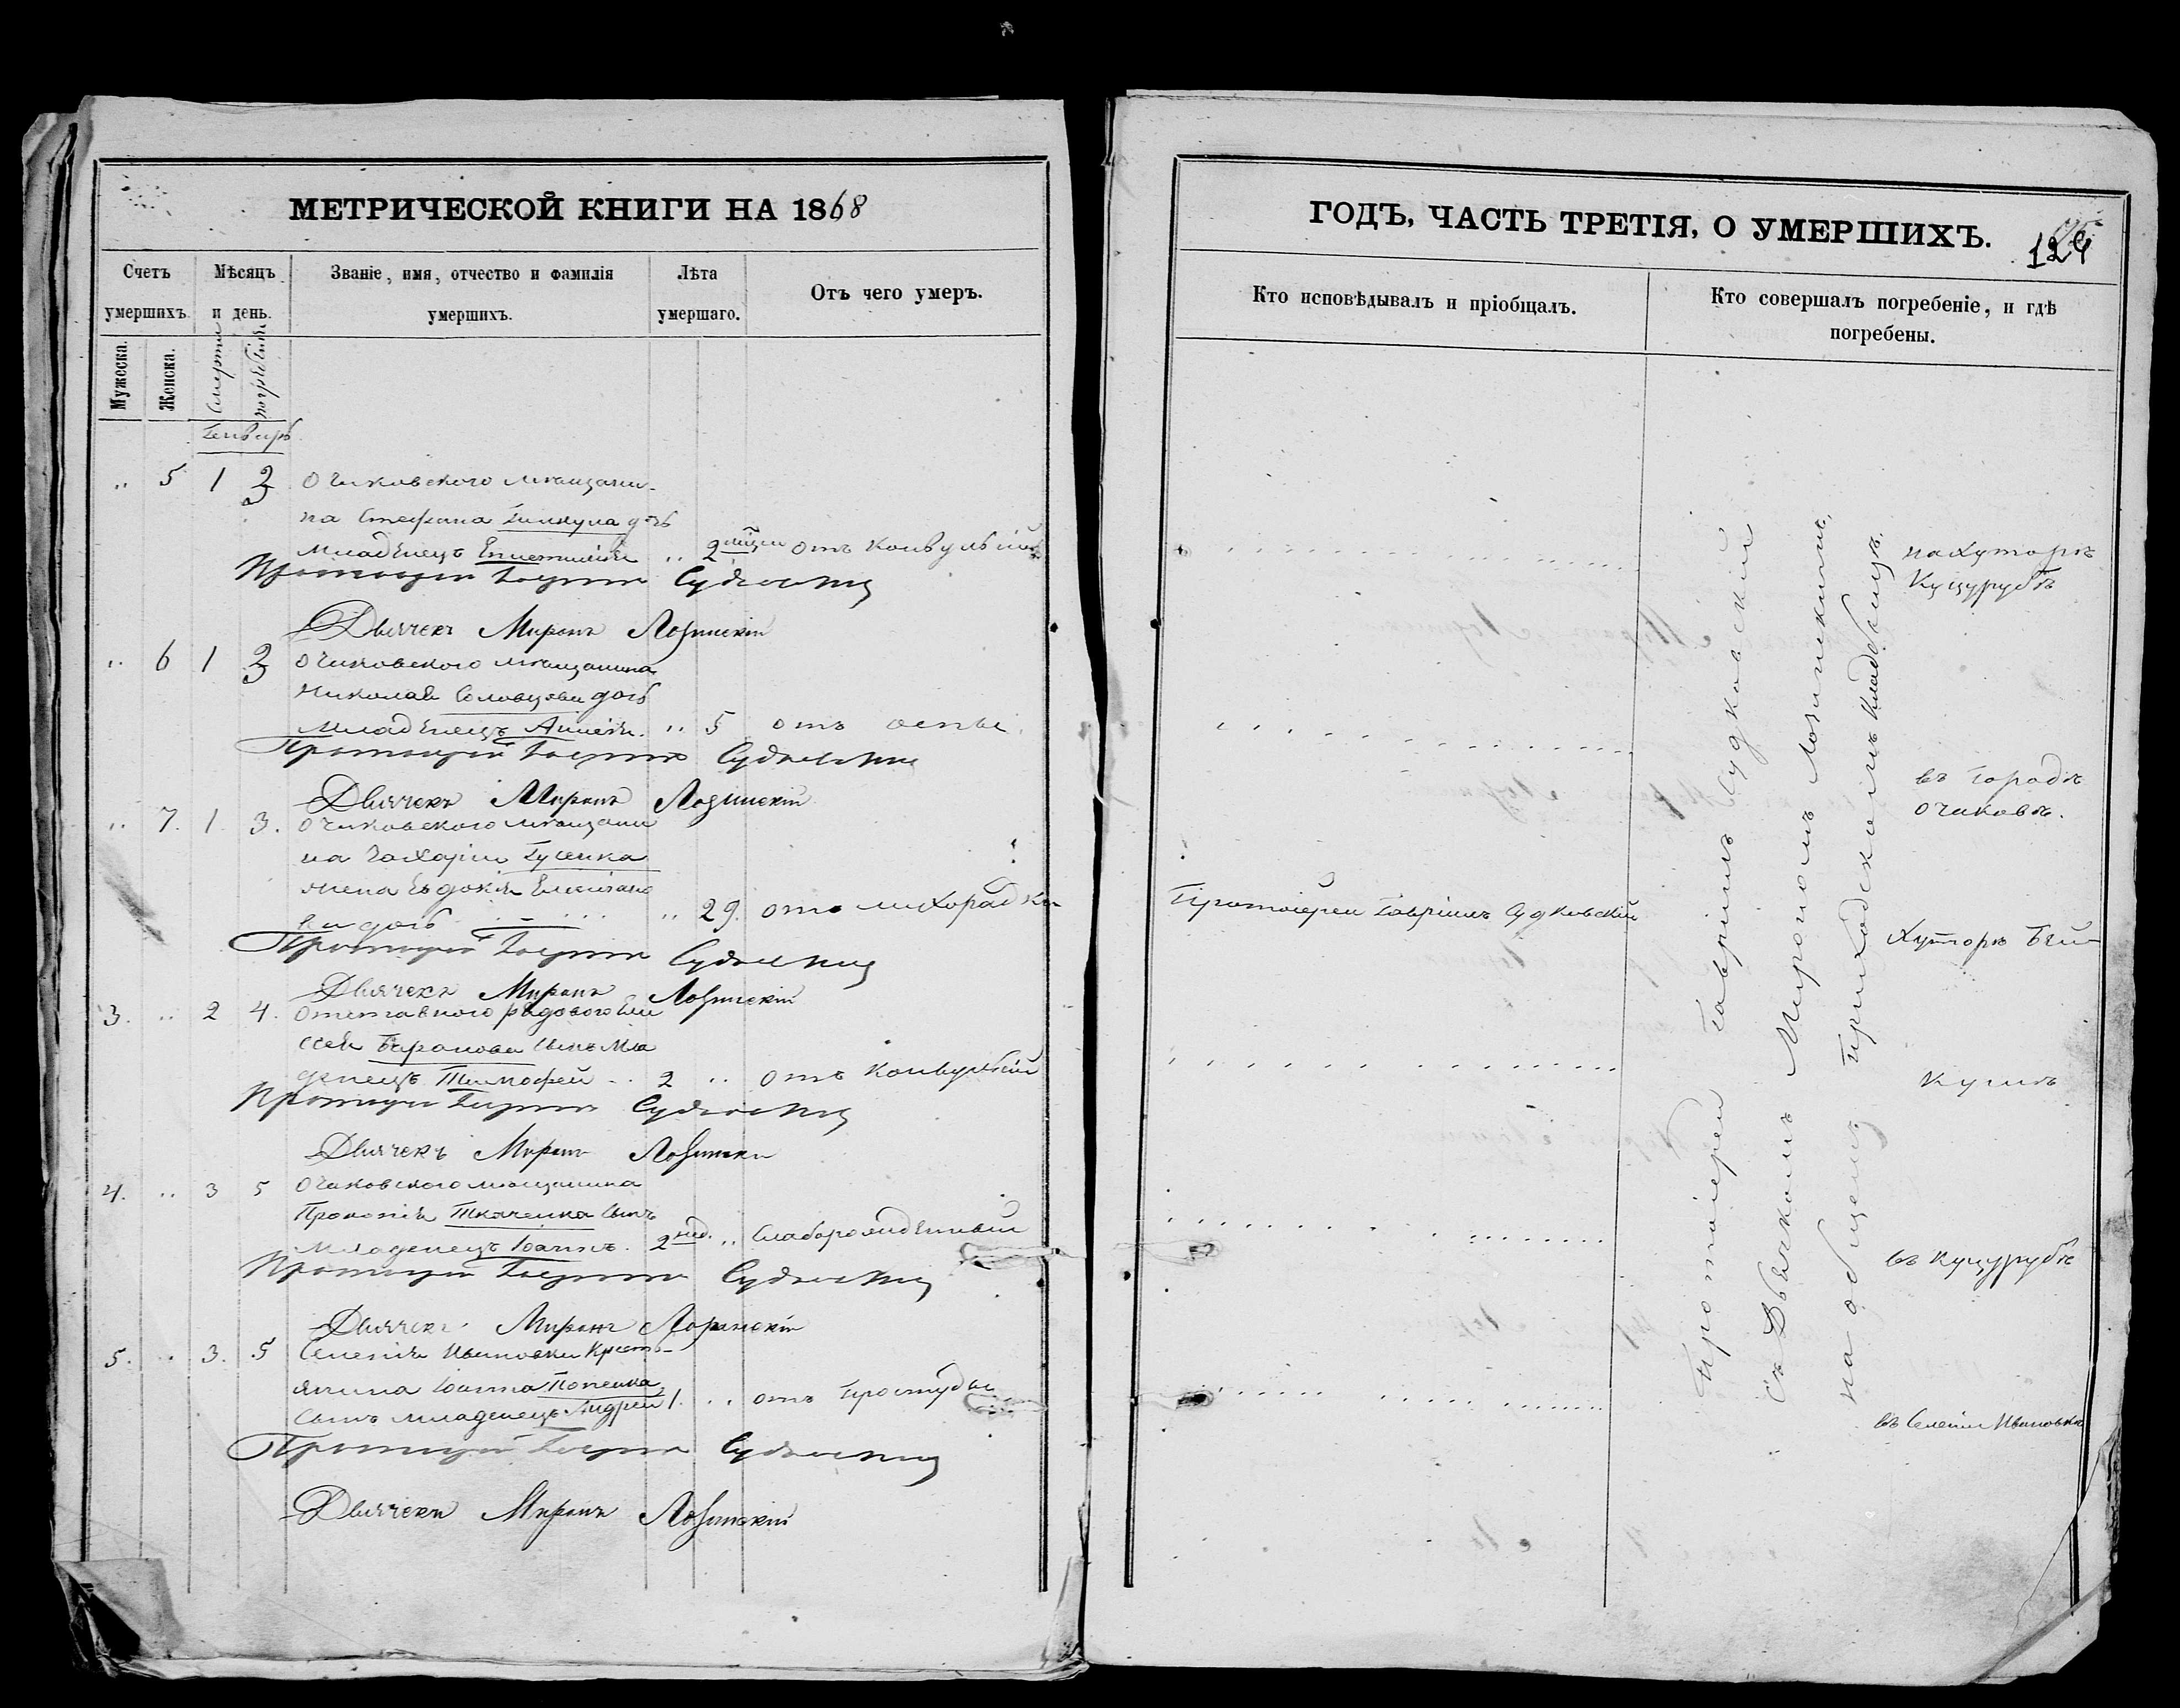 МЕТРИЧЕСКОЙ КНИГИ НА 1868
Счетъ умершихъ.
Мѣсяцъ и день.
Званіе, имя, отчество и фамилія умершихъ.
Лѣта умершаго.
Отъ чего умеръ.
Мужеска.
Женска.
Смерти
погребенія
Генварь
" 5 1 3 Очаковского мѣщани-
на Стефана дочь
младенецъ " 2 отъ конвульсій
Протоіерей Гавріилъ Судковскій
Дьячекъ Миронъ Лозинскій
" 6 1 3 Очаковского мѣщанина
Николая дочь
младенецъ " 5 отъ оспы.
Протоіерей Гавріилъ Судковскій
Дьячекъ Миронъ Лозинскій
" 7. 1. 3. Очаковского мѣщани
на Захаріи Гусенка
жена Евдокія
" 29. отъ лихорадки
Протоіерей Гавріилъ Судковскій
Дьячекъ Миронъ Лозинскій
3. " 2 4. Отставного рядового
Баранова сынъ мла
денецъ Тимофей 2 " отъ конвульсій
Протоіерей Гавріилъ Судковскій
Дьячекъ Миронъ Лозинскій
4. " 3 5 Очаковского мѣщанина
Прокопія Ткаченка сынъ
младенецъ Іоаннъ. 2 нед. " слаборожденный
Протоіерей Гавріилъ Судковскій
Дьячекъ Миронъ Лозинскій
5. " 3. 5 Селенія Ивановки Кресть-
янина Іоанна Попенка
сынъ младенецъ Андрей 1. " отъ простуды
Протоіерей Гавріилъ Судковскій
Дьячекъ Миронъ Лозинскій
ГОДЪ, ЧАСТЬ ТРЕТІЯ, О УМЕРШИХЪ.
Кто исповѣдывалъ и пріобщалъ.
Кто совершалъ погребеніе, и гдѣ погребены.
Протоіерей Гавріилъ Судковскій
Протоіерей Гавріилъ Судковскій
съ Дьячкомъ Мирономъ Лозинскимъ,
на общемъ приходскомъ кладбищѣ.
на хуторѣ
Куцурубѣ
въ Городѣ
Очаковѣ.
въ Куцурубѣ
въ Селеніи Ивановкѣ